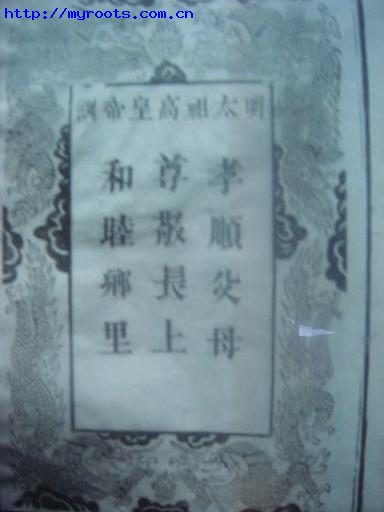 http://myroots.com.cn
明太祖高皇帝訓
孝順父母
尊敬長上
和睦鄉里